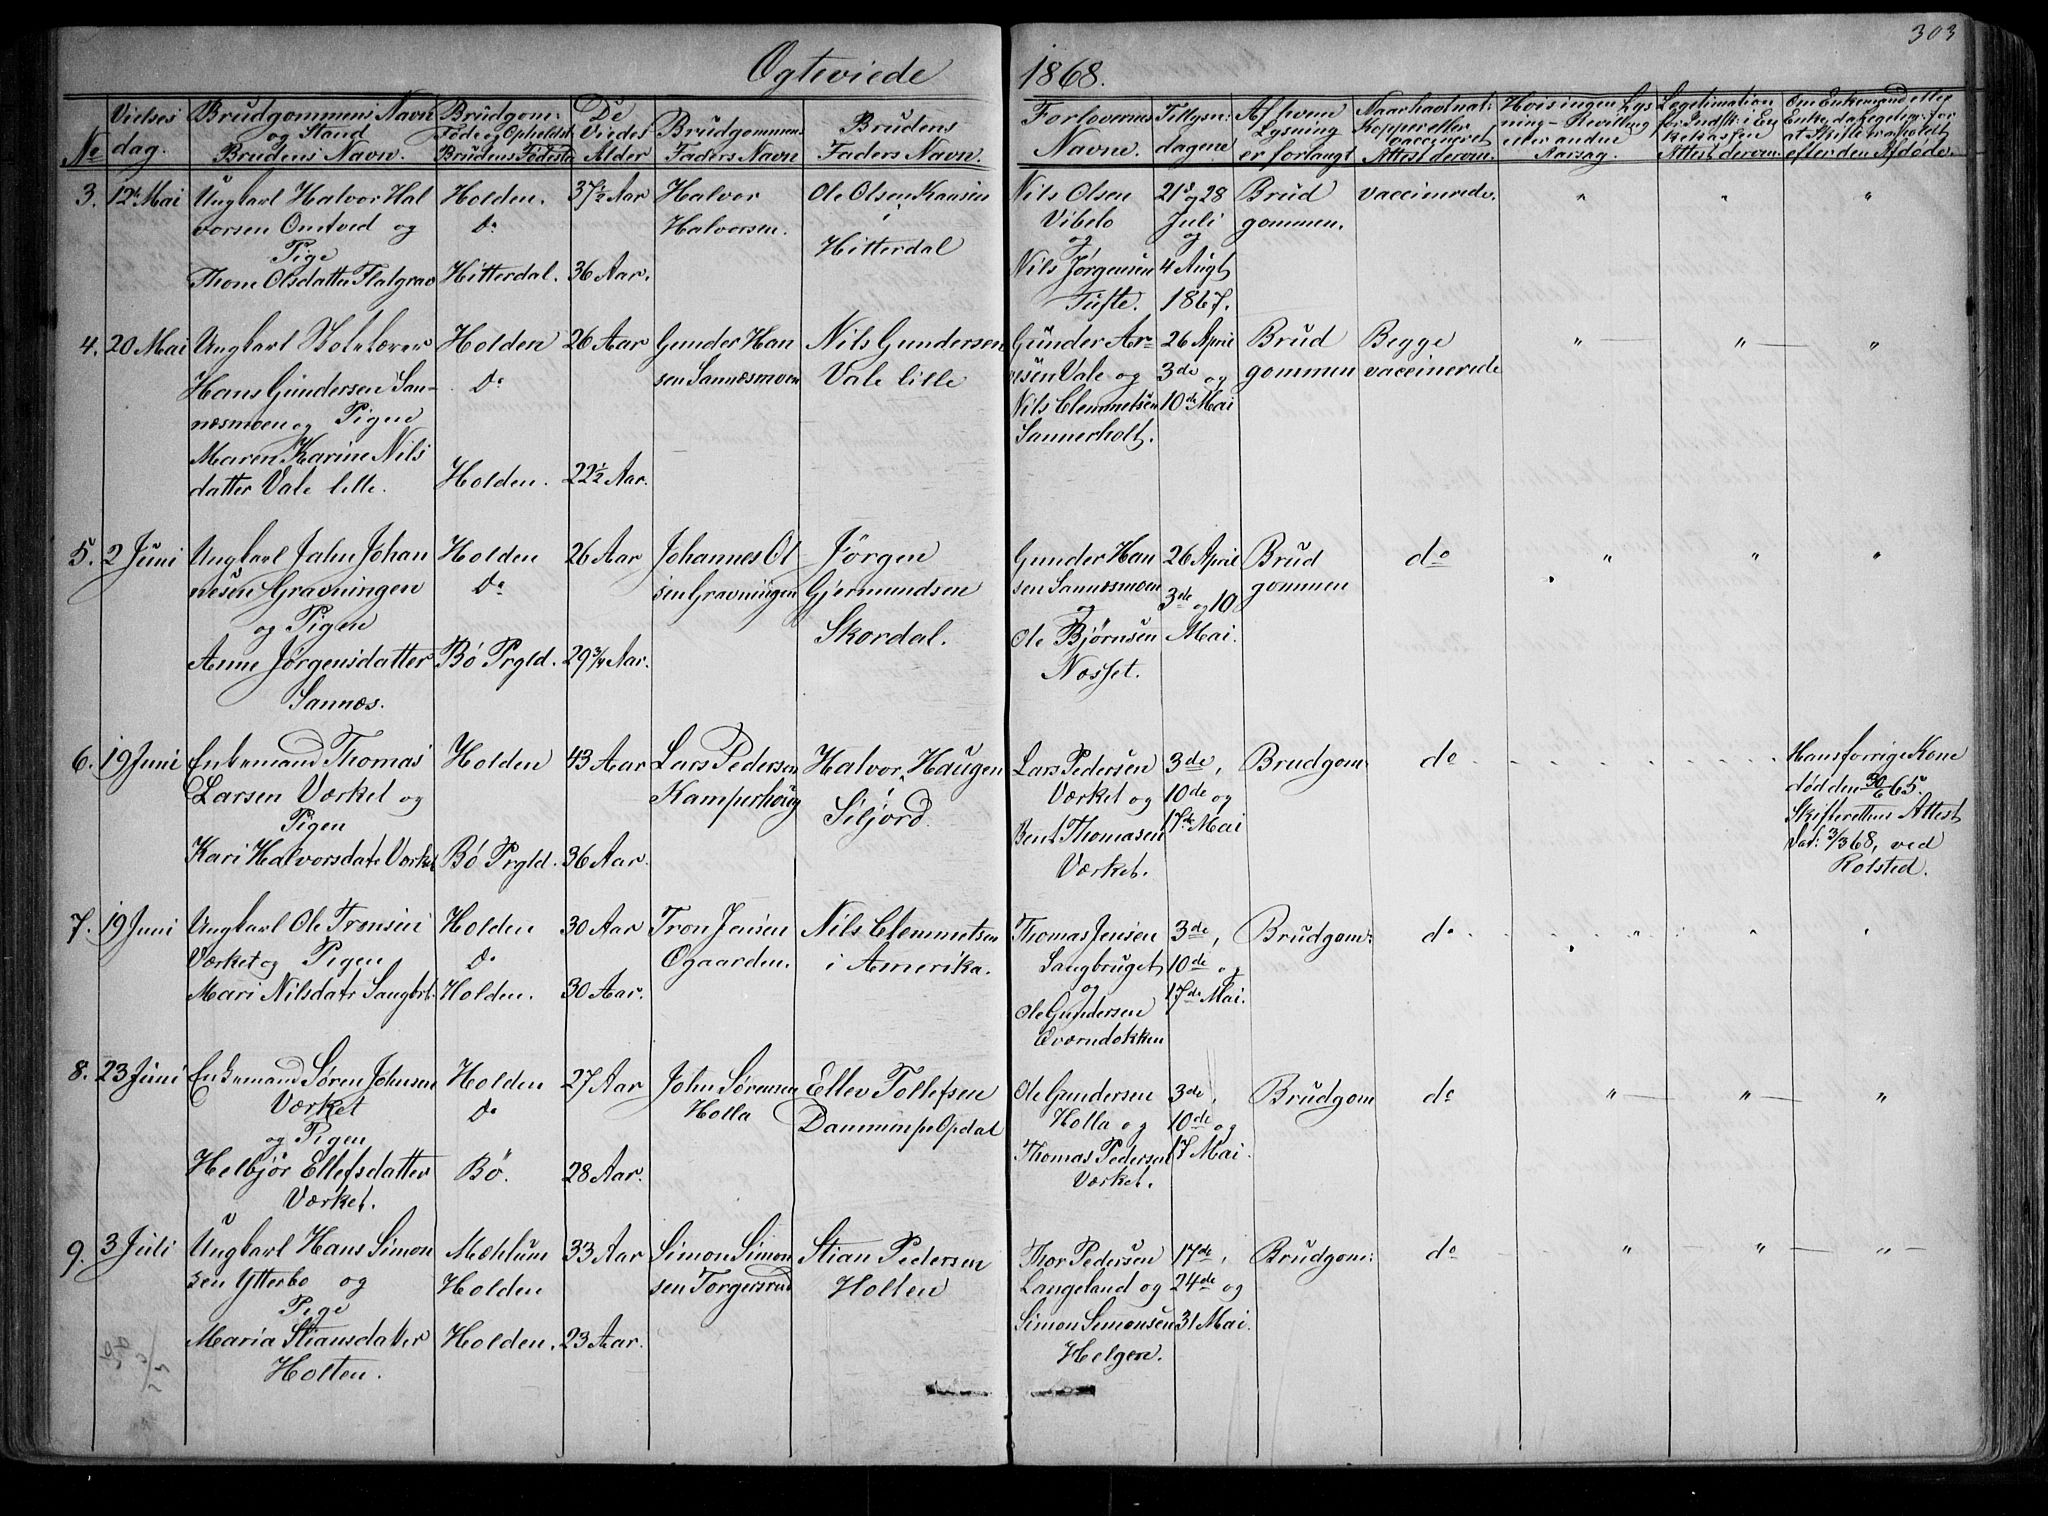 303
Ogteviede 1868.
No
Vielses dag.
Brudgommens Navn og Stand Brudens Navn.
Brudgom: Föde og Opholdst Brudens Födesty
De Viedes Alder
Brudgommens Faders Navn
Brudens Faders Navn.
Forlovernes Navne.
Tillysn: dagene
Af hvem Lysning er forlangt
Naar havt nat: Kopper eller vaccineret Attest derom.
Hvis ingen Lysning - Bevilling eller anden Aarsag.
Legitimation for Indsk: i Enkekassen Attest derom.
Om Enkemand eller Enke, da Legdem: for at Skifte er afholdt efter den Afdöde.
3. 12te Mai
Ungkarl Halvor Hal
vorsen Omtved og
Pige
Thone Olsdatter Flatgrav
Holden.
Do
Hitterdal.
37½ Aar
36 Aar.
Halvor
Halvorsen.
Ole Olsen Kaasen
i
Hitterdal
Nils Olsen
Vibeto
og
Nils Jørgensen
Tufte.
21s og 28
Juli
og
4 Augt
1867.
Brud
gommen.
vaccinerede.
" " "
4. 20 Mai
Ungkarl Skolelærer
Hans Gundersen San-
næsmoen og Pigen
Maren Karine Nils
datter Vale lille.
Holden
Do
Holden.
26 Aar
22½ Aar.
Gunder Han
sen Sannæsmoen
Nils Gundersen
Vale lille
Gunder Ar-
vesen Vale og
Nils Clemmetsen
Sannerholt.
26 April
3de og
10de Mai
Brud
gommen
Begge
vaccinerede
" " "
5. 2 Juni
Ungkarl Jahn Johan
nesen Gravningen
og Pigen
Anne Jørgensdatter
Sannæs.
Holden
Do
Bö Prgld.
26 Aar
29¾ Aar.
Johannes Ol
sen Gravningen
Jørgen
Gjermundsen
Skordal.
Gunder Han
sen Sannæsmoen
og
Ole Bjørnsen
Næsset.
26 April
3de og 10
Mai.
Brud
gommen
do
" " "
6. 19 Juni
Enkemand Thomas
Larsen Værket og
Pigen
Kari Halvorsdatr Værket
Holden
Bö Prgld.
43 Aar
36 Aar.
Lars Pedersen
Kamperhoug
Halvor Haugen
i
Siljord.
Lars Pedersen
Værket og
Bent Thomasen
Værket.
3de,
10de og
17de Mai
Brudgom:
do
Hans forrige Kone
död den 30/6 65.
Skifterettens Attest
dat: 3/3 68, ved
Rolsted.
7. 19 Juni
Ungkarl Ole Tronsen
Værket og Pigen
Mari Nilsdatr Saugbrt.
Holden
Do
Holden.
30 Aar
30 Aar.
Tron Jensen
Ogaarden.
Nils Clemmetsen
i Amerika.
Thomas Jensen
Saugbruget
og
Ole Gundersen
Qværndokken
3de,
10de og
17de Mai.
Brudgom:
do
" " "
8. 23 Juni
Enkemand Søren Johnsen
Værket
og Pigen
Helbjör Ellefsdatter
Værket.
Holden
Do
Bö.
27 Aar
28 Aar.
John Sørensen
Holla
Ellev Tollefsen
Dammen pe Opdal
Ole Gundersen
Holla og
Thomas Pedersen
Værket.
3de,
10de og
17 Mai.
Brudgom
do
" " "
9. 3 Juli
Ungkarl Hans Simon
sen Ytterbo og
Pige
Maria Stiansdatter
Holten.
Mæhlum
Holden
Holden.
33 Aar
23 Aar.
Simon Simon
sen Torgersrud
Stian Pedersen
Holten
Thor Pedersen
Langeland og
Simon Simonsen
Helgen.
17de,
24de og
31 Mai.
Brudgom:
do
" " "